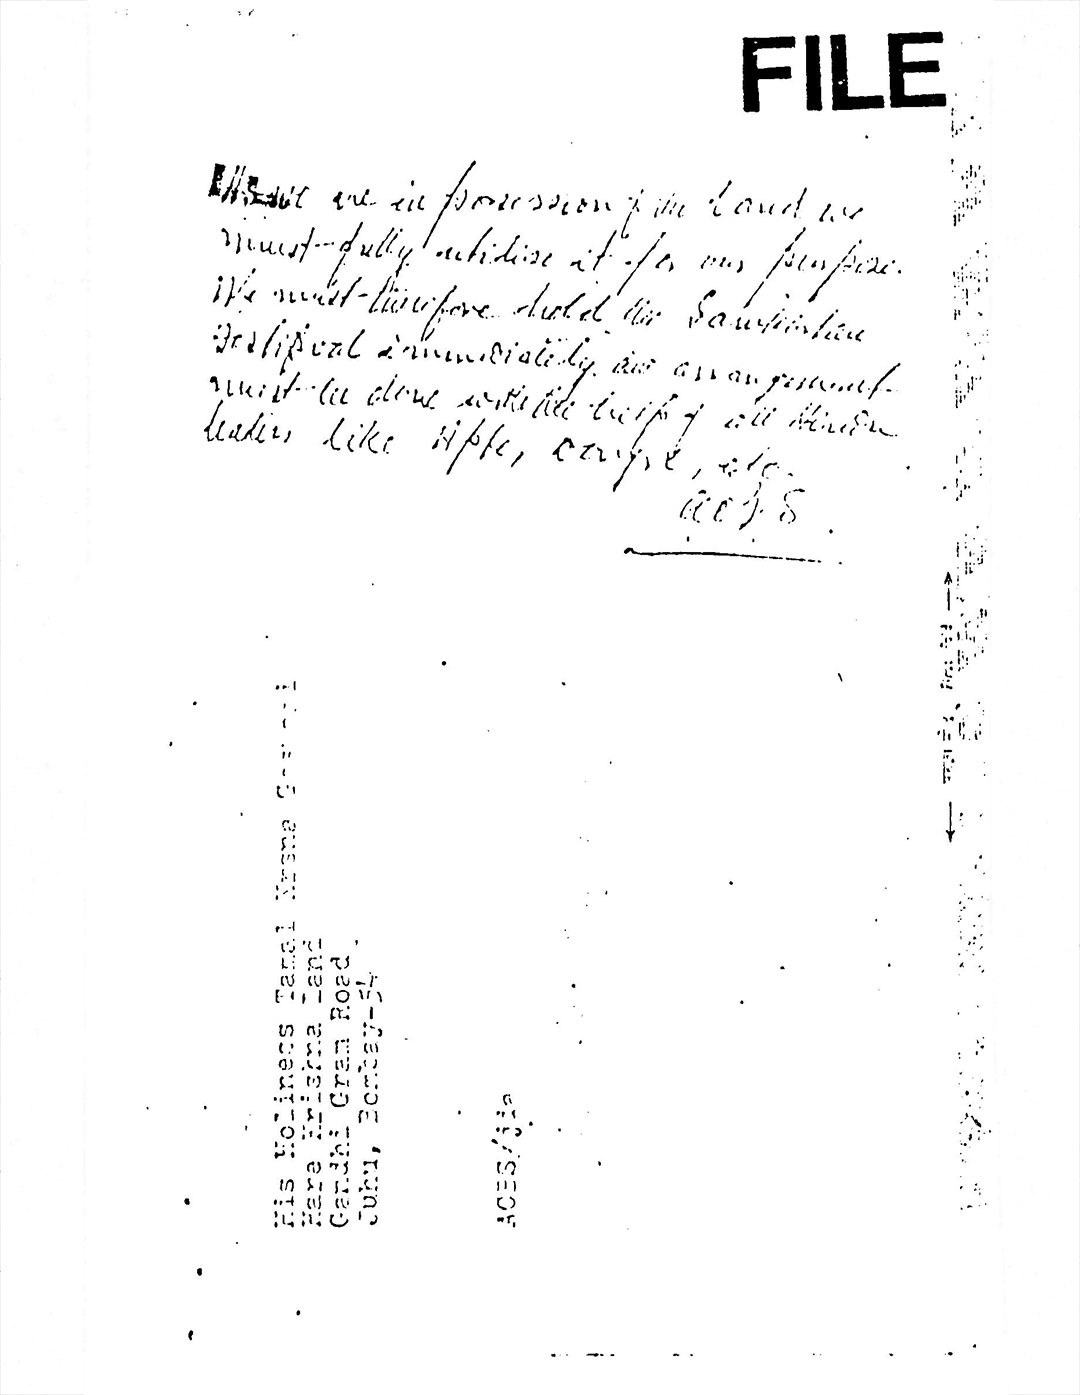 FILE
we are in possession of the Land, we
must fully utilise it for our purpose.
We must therefore hold the Sankirtan
Festival immediately, the arrangement
must be done with the help of all Hindu
leaders like Apte, , etc.
ACBS
His Holiness Tamal Krsna Goswami
Hare Krishna Land
Gandhi Gram Road
Juhu, Bombay-54
ACBS/